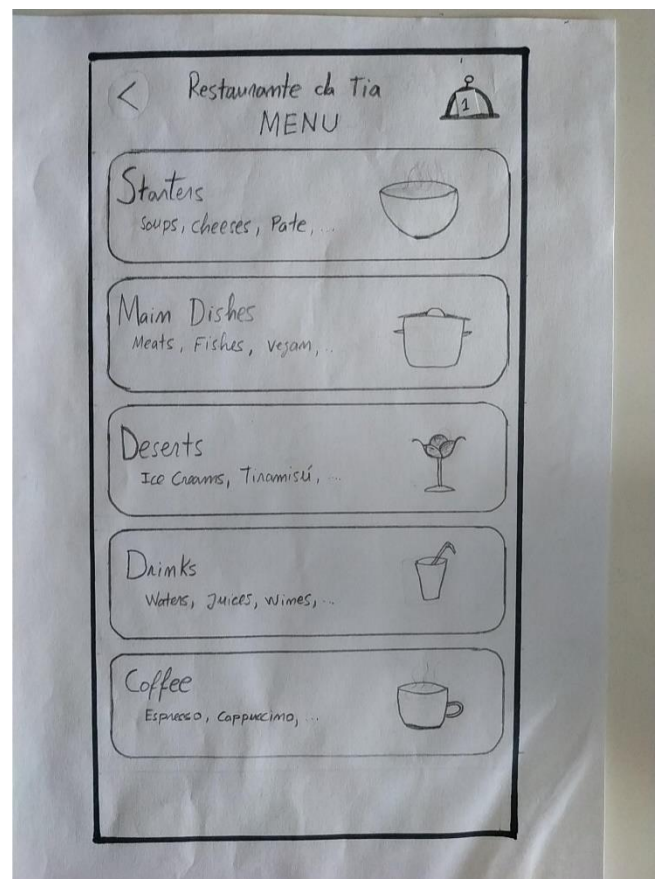 Restaurante da Tia
1
MENU
Starters
Soups, cheeses, Pate, ...
Main Dishes
Meats, Fishes, vegan, ..
Deserts
Ice Creams, Tiramisú, ...
Drinks
Waters, Juices, Wines, ...
Coffee
Espresso, Cappuccino, ...